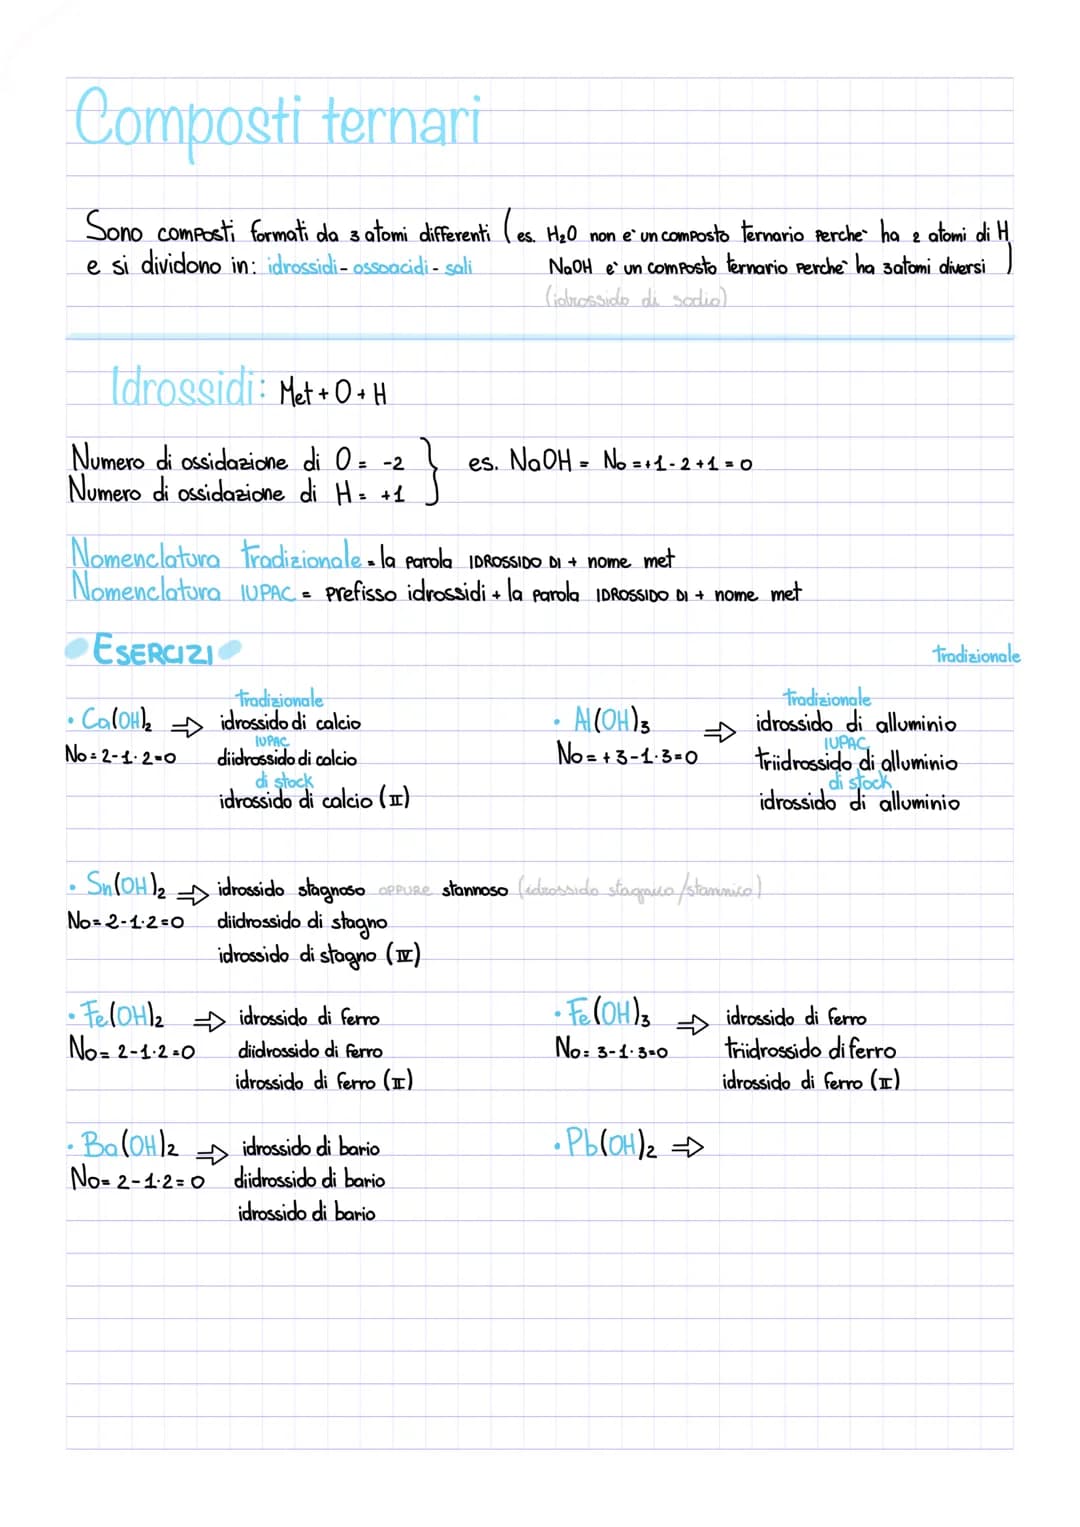 Composti ternari
Sono composti formati da 3 atomi differenti (es. H₂O non e` un composto ternario perche` ha 2 atomi di H
e si dividono in: idrossidi - ossoacidi - sali NaOH e` un composto ternario perche` ha 3 atomi diversi )
(idrossido di sodio)
Idrossidi: Met + O + H
Numero di ossidazione di O = -2 } es. NaOH = No = +1 - 2 + 1 = 0
Numero di ossidazione di H = +1
Nomenclatura tradizionale = la parola IDROSSIDO DI + nome met
Nomenclatura IUPAC = prefisso idrossidi + la parola IDROSSIDO DI + nome met
ESERCIZI
tradizionale
tradizionale
• Ca(OH)₂ ⇒ idrossido di calcio
IUPAC
No = 2 - 1 · 2 = 0 diidrossido di calcio
di stock
idrossido di calcio (II)
tradizionale
• Al(OH)₃ ⇒ idrossido di alluminio
IUPAC
No = + 3 - 1 · 3 = 0 triidrossido di alluminio
di stock
idrossido di alluminio
• Sn(OH)₂ ⇒ idrossido stagnoso OPPURE stannoso (idrossido stagnico/stannico)
No = 2 - 1 · 2 = 0 diidrossido di stagno
idrossido di stagno (IV)
• Fe(OH)₂ ⇒ idrossido di ferro
No = 2 - 1 · 2 = 0 diidrossido di ferro
idrossido di ferro (II)
• Fe(OH)₃ ⇒ idrossido di ferro
No = 3 - 1 · 3 = 0 triidrossido di ferro
idrossido di ferro (II)
• Ba(OH)₂ ⇒ idrossido di bario
No = 2 - 1 · 2 = 0 diidrossido di bario
idrossido di bario
• Pb(OH)₂ ⇒